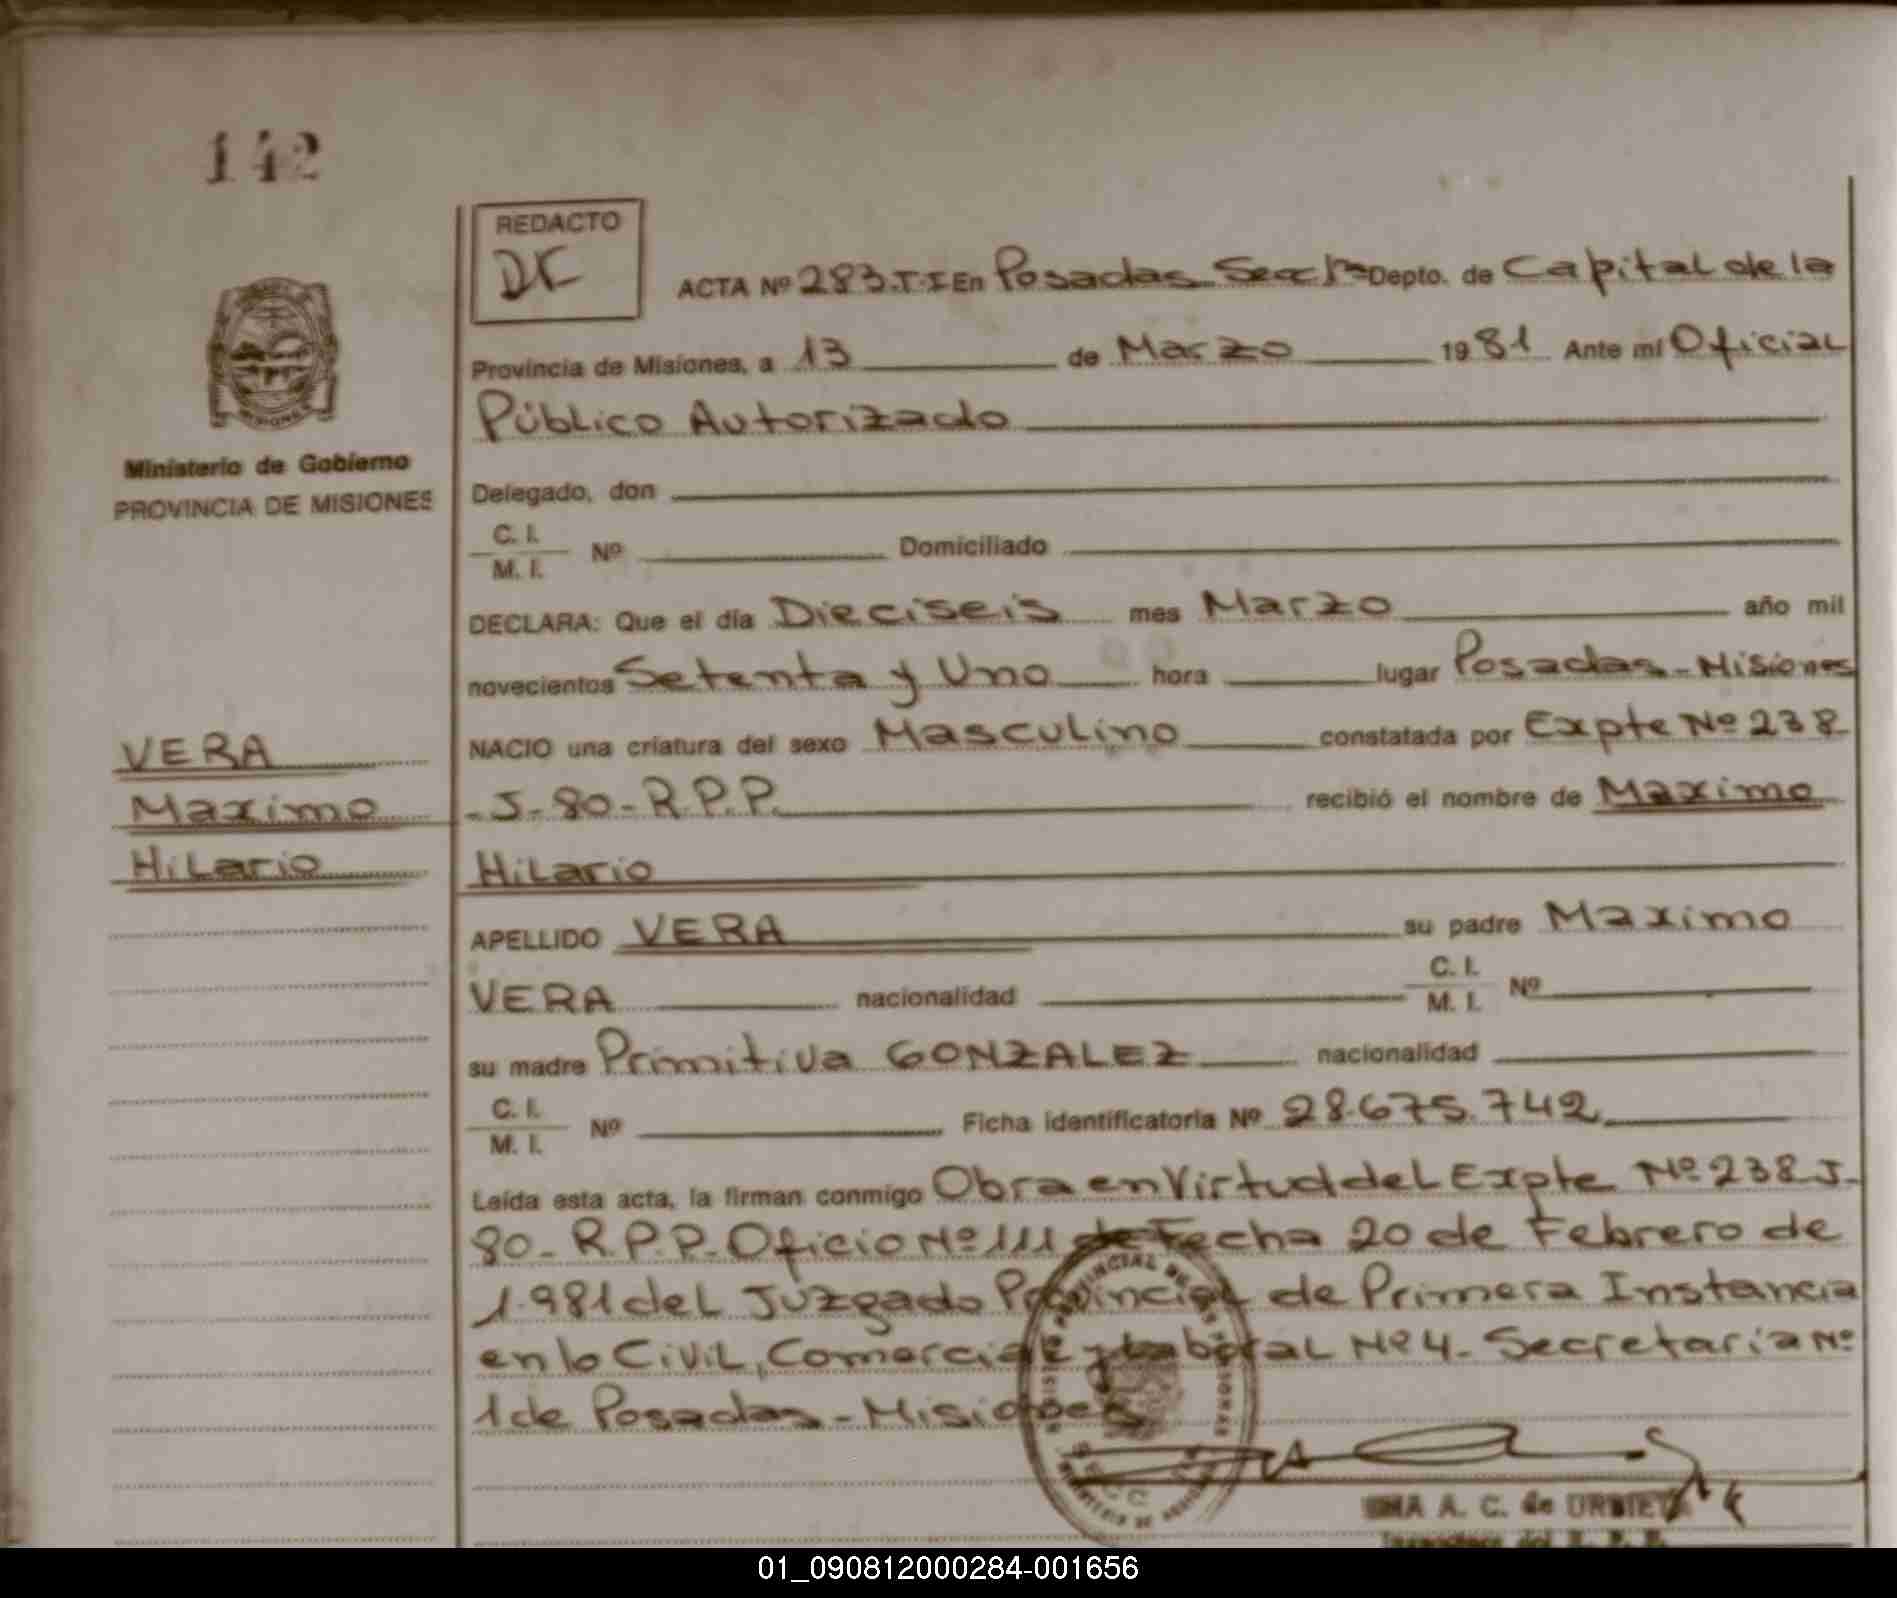 142
REDACTO
DF
ACTA Nº 283.T.I En Posadas Secc 1ª Depto. de Capital de la
Provincia de Misiones, a 13 de Marzo 1981 Ante mí Oficial
Público Autorizado
Ministerio de Gobierno
PROVINCIA DE MISIONES
Delegado, don
C. I.
M. I. Nº Domiciliado
DECLARA: Que el día Dieciseis mes Marzo año mil
novecientos Setenta y Uno hora lugar Posadas-Misiones
VERA
Maximo
Hilario
NACIO una criatura del sexo Masculino constatada por Expte Nº 238
-J-80-R.P.P. recibió el nombre de Maximo
Hilario
APELLIDO VERA su padre Maximo
VERA nacionalidad C. I.
M. I. Nº
su madre Primitiva GONZALEZ nacionalidad
C. I.
M. I. Nº Ficha identificatoria Nº 28.675.742
Leída esta acta, la firman conmigo Obra en Virtud del Expte Nº 238 J-
80-R.P.P. Oficio Nº 111 de Fecha 20 de Febrero de
1.981 del Juzgado Provincial de Primera Instancia
en lo Civil, Comercial y Laboral Nº 4- Secretaría Nº
1 de Posadas-Misiones
PROVINCIAL DE LAS PERSONAS
A. C. de URBIETA
01_090812000284-001656